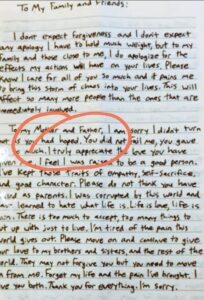 To My Family and Friends:
I dont expect forgiveness and I dont expect
any apology I have to hold much weight, but to my
family and those close to me, I do apologize for the
effects my actions will have on your lives. Please
know I care for all of you so much and it pains me
to bring this storm of chaos into your lives. This will
affect so many more people than the ones that are
immediately involved.
To my Mother and Father, I am sorry I didn't turn
as you had hoped. You did not fail me, you gave
much. I truly appreciate the love you have
given me. I feel I was raised to be a good person.
I've kept those traits of empathy, self-sacrifice,
and good character. Please do not think you have
as parents. I was corrupted by this world and
learned to hate what life is. Life is love, life is
There is too much to accept, too many things to
put up with just to live. I'm tired of the pain this
world gives out. Please move on and continue to give
love to my brothers and sisters, and the rest of the
world. They may not forgive you but you need to move
from me. Forget my life and the pain I've brought. I
love you both. Thank you for everything. I'm sorry.